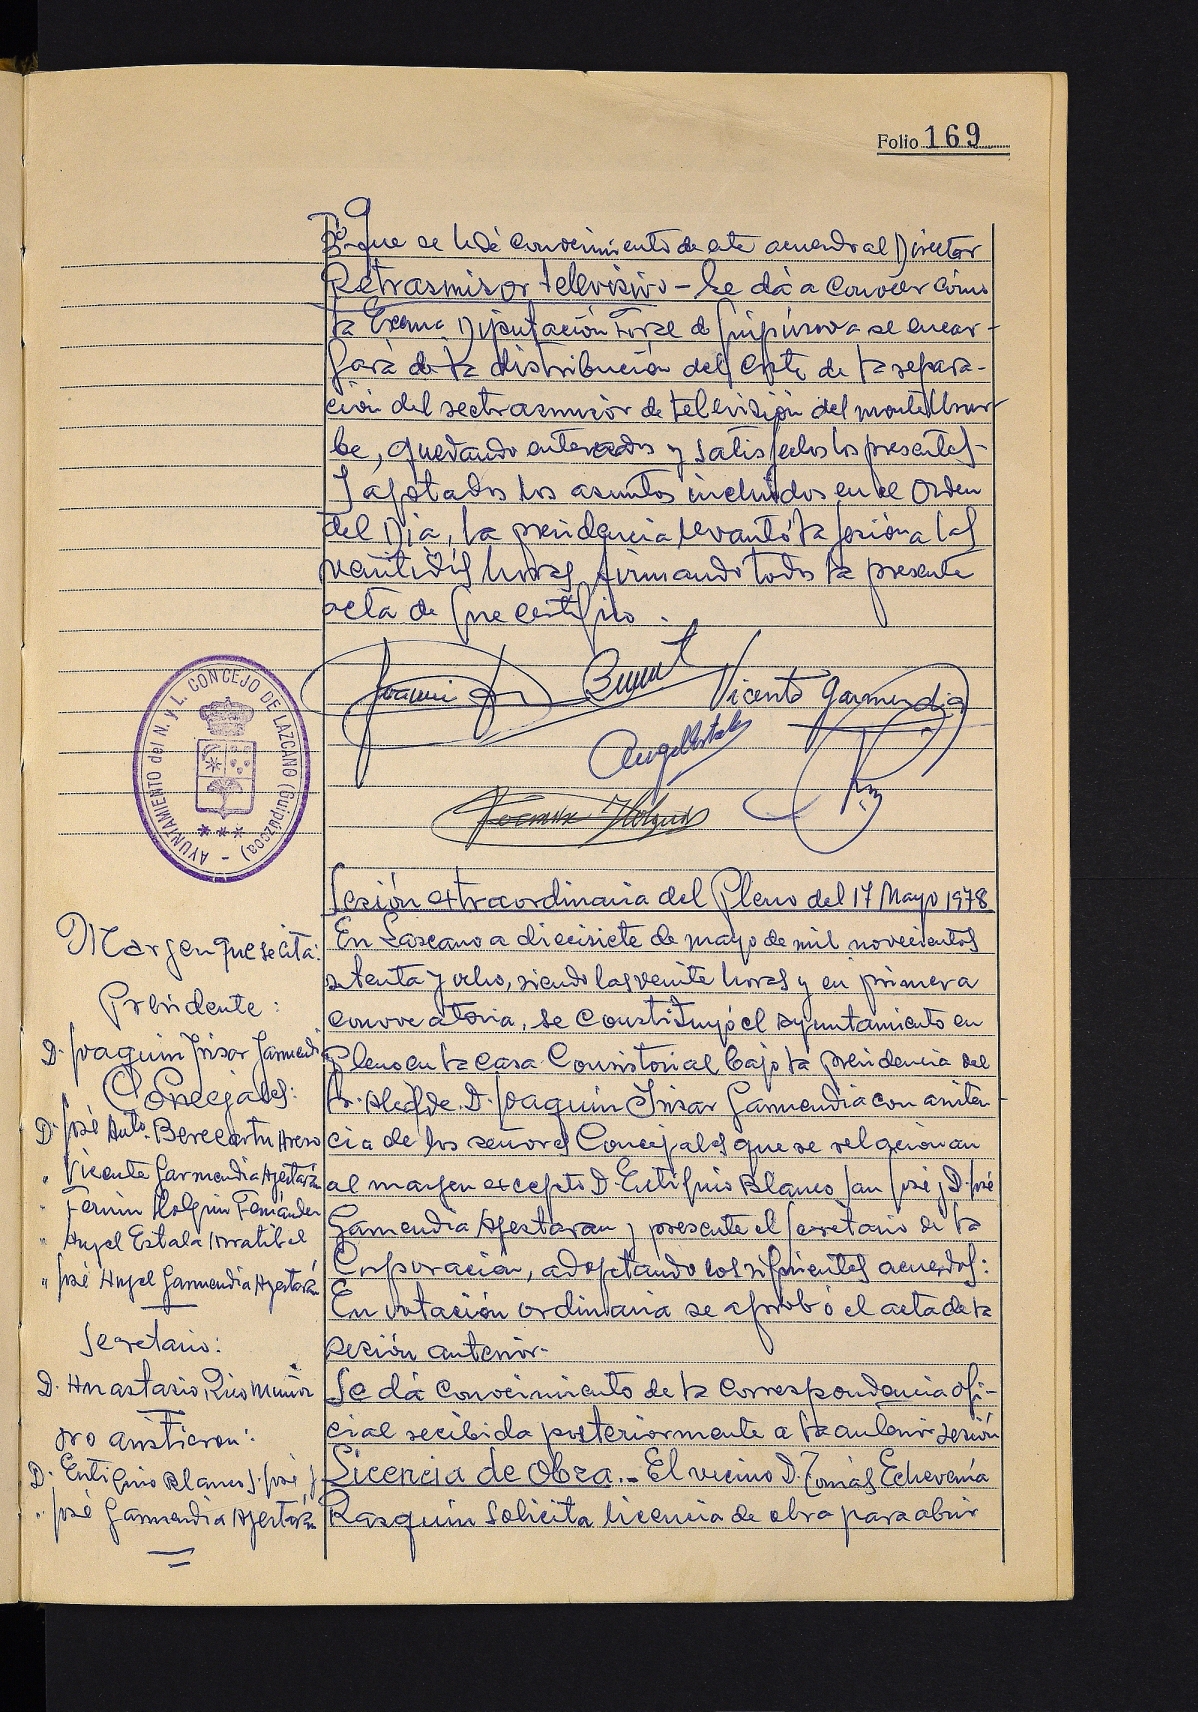 Folio 169
3º Que se le dé conocimiento de este acuerdo al Director
Retrasmisor televisivo - Se dá a conocer cómo
la Excma Diputación Foral de Guipúzcoa se encar-
gará de la distribución del coste de la repara-
ción del rectrasmisor de televisión del monte Usur-
be, quedando enterados y satisfechos los presentes-
Y agotados los asuntos incluidos en el Orden
del Día, la presidencia levantó la sesión a las
veintidós horas firmando todos la presente
acta de que certifico.
Vicente Garmendia
Angel Estala
Fermin Holguin
AYUNTAMIENTO del N. y L. CONCEJO DE LAZCANO (Guipúzcoa)
Sesión extraordinaria del Pleno del 17 Mayo 1978
Margen que se cita:
Presidente:
D. Joaquín Irizar Garmendia
Concejales:
D. José Anto. Berecartu Areso
" Vicente Garmendia Agestarán
" Fermin Holguin Fernández
" Angel Estala Urratibel
" José Angel Garmendia Agestarán
Secretario:
D. Anastasio Rico Muñoz
no asistieron:
D. Eutiquio Blanco S. José y
" José Garmendia Agestarán
En Lazcano a diecisiete de mayo de mil novecientos
setenta y ocho, siendo las veinte horas y en primera
convocatoria, se constituyó el ayuntamiento en
Pleno en la casa Consistorial bajo la presidencia del
Sr. Alcalde D. Joaquín Irizar Garmendia con asisten-
cia de los señores Concejales que se relacionan
al margen excepto D. Eutiquio Blanco San José y D. José
Garmendia Agestaran y presente el Secretario de la
Corporación, adoptando los siguientes acuerdos:
En votación ordinaria se aprobó el acta de la
sesión anterior-
Se dá conocimiento de la correspondencia ofi-
cial recibida posteriormente a la anterior sesión
Licencia de Obra.- El vecino D. Tomás Echeverría
Rasquín solicita licencia de obra para abrir